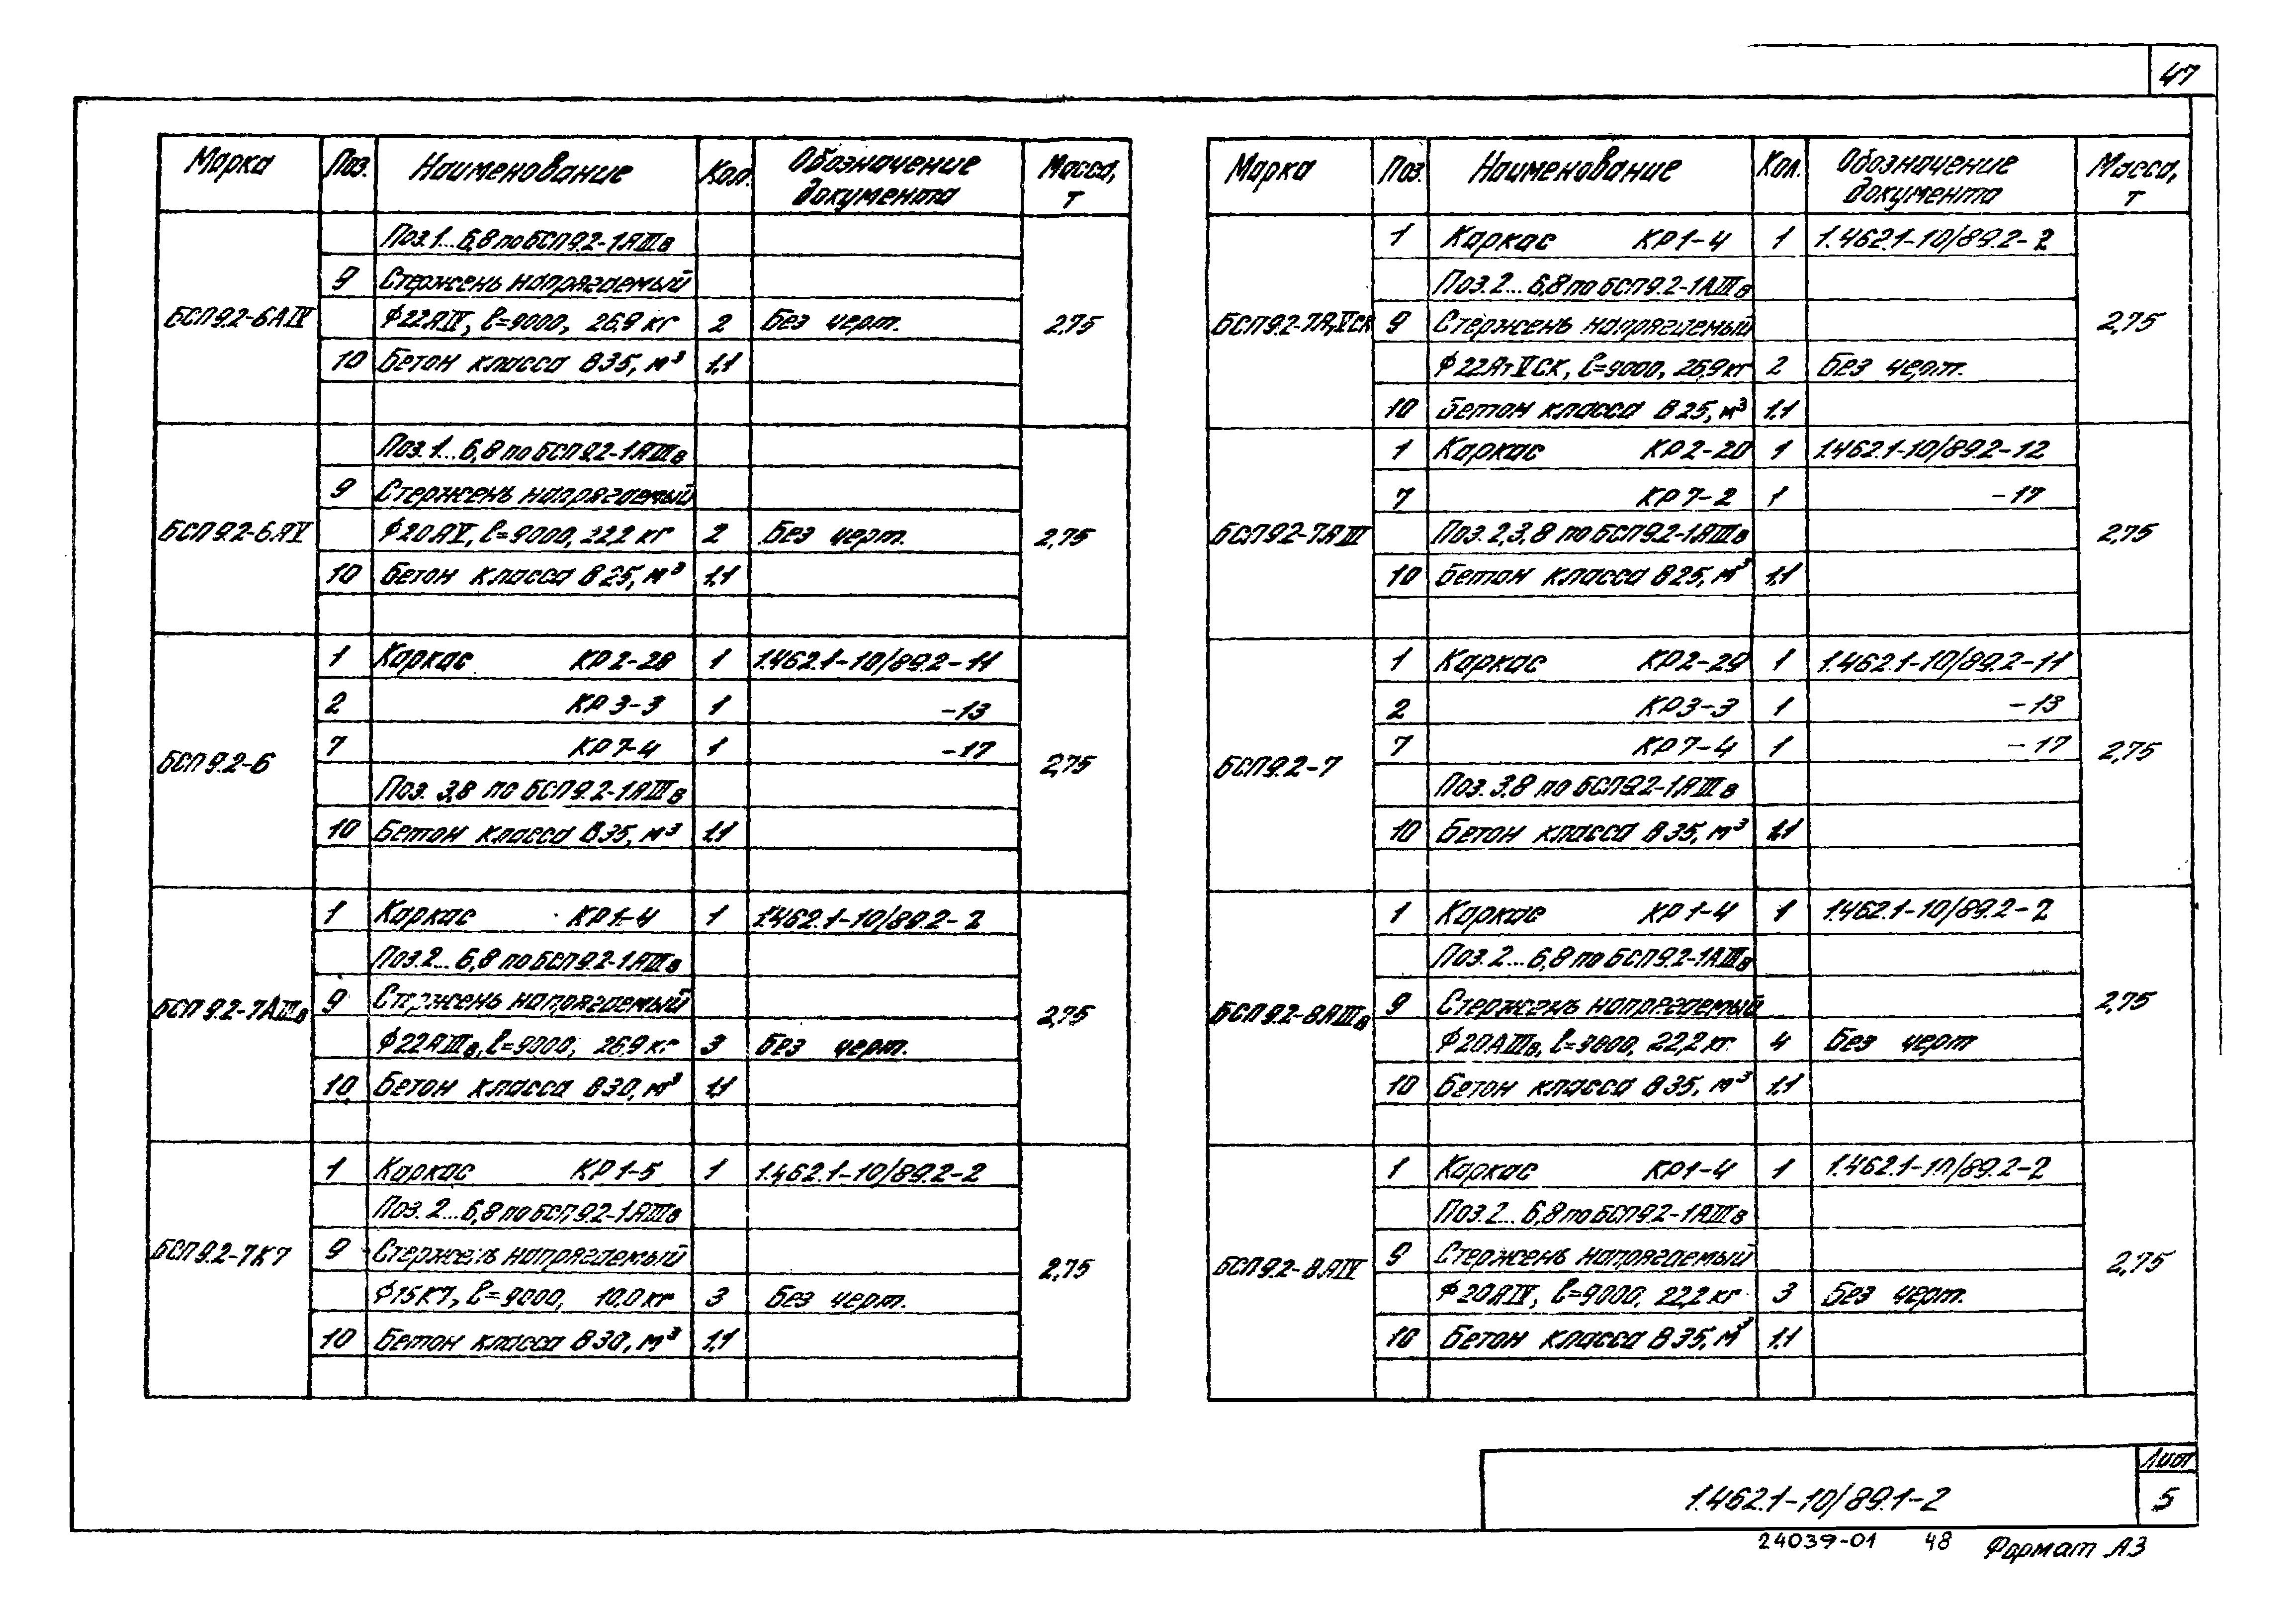 47
Марка Поз. Наименование Кол. Обозначение документа Масса, т
Поз.1...6,8 по БСП9.2-1АIIIв
9 Стержень напрягаемый
БСП9.2-6АIV ф22АIV, ℓ=9000, 26.9 кг 2 Без черт. 2,75
10 Бетон класса В35, м³ 1,1
Поз.1...6,8 по БСП9.2-1АIIIв
9 Стержень напрягаемый
БСП9.2-6АV ф20АV, ℓ=9000, 22,2 кг 2 Без черт. 2,75
10 Бетон класса В25, м³ 1,1
1 Каркас КР2-28 1 1.462.1-10/89.2-11
2 КР3-3 1 -13
7 КР7-4 1 -17
БСП9.2-6 2,75
Поз. 3,8 по БСП9.2-1АIIIв
10 Бетон класса В35, м³ 1,1
1 Каркас КР1-4 1 1.462.1-10/89.2-2
Поз.2...6,8 по БСП9.2-1АIIIв
БСП9.2-7АIIIв 9 Стержень напрягаемый 2,75
ф22АIIIв, ℓ=9000, 26.9 кг 3 Без черт.
10 Бетон класса В30, м³ 1,1
1 Каркас КР1-5 1 1.462.1-10/89.2-2
Поз. 2...6,8 по БСП9.2-1АIIIв
БСП9.2-7К7 9 Стержень напрягаемый 2,75
ф15К7, ℓ=9000, 10.0 кг 3 Без черт.
10 Бетон класса В30, м³ 1,1
Марка Поз. Наименование Кол. Обозначение документа Масса, т
1 Каркас КР1-4 1 1.462.1-10/89.2-2
Поз.2...6,8 по БСП9.2-1АIIIв
БСП9.2-7АтVСК 9 Стержень напрягаемый 2,75
ф22АтVСК, ℓ=9000, 26.9 кг 2 Без черт.
10 Бетон класса В25, м³ 1,1
1 Каркас КР2-20 1 1.462.1-10/89.2-12
7 КР7-2 1 -17
БСП9.2-7АIII Поз.2,3,8 по БСП9.2-1АIIIв 2,75
10 Бетон класса В25, м³ 1,1
1 Каркас КР2-29 1 1.462.1-10/89.2-11
2 КР3-3 1 -13
7 КР7-4 1 -17
БСП9.2-7 2,75
Поз.3,8 по БСП9.2-1АIIIв
10 Бетон класса В35, м³ 1,1
1 Каркас КР1-4 1 1.462.1-10/89.2-2
Поз.2...6,8 по БСП9.2-1АIIIв
БСП9.2-8АIIIв 9 Стержень напрягаемый 2,75
ф20АIIIв, ℓ=9000, 22,2 кг 4 Без черт
10 Бетон класса В35, м³ 1,1
1 Каркас КР1-4 1 1.462.1-10/89.2-2
Поз.2...6,8 по БСП9.2-1АIIIв
БСП9.2-8АIV 9 Стержень напрягаемый 2,75
ф20АIV, ℓ=9000, 22,2 кг 3 Без черт.
10 Бетон класса В35, м³ 1,1
1.462.1-10/89.1-2 Лист 5
24039-01 48 Формат А3